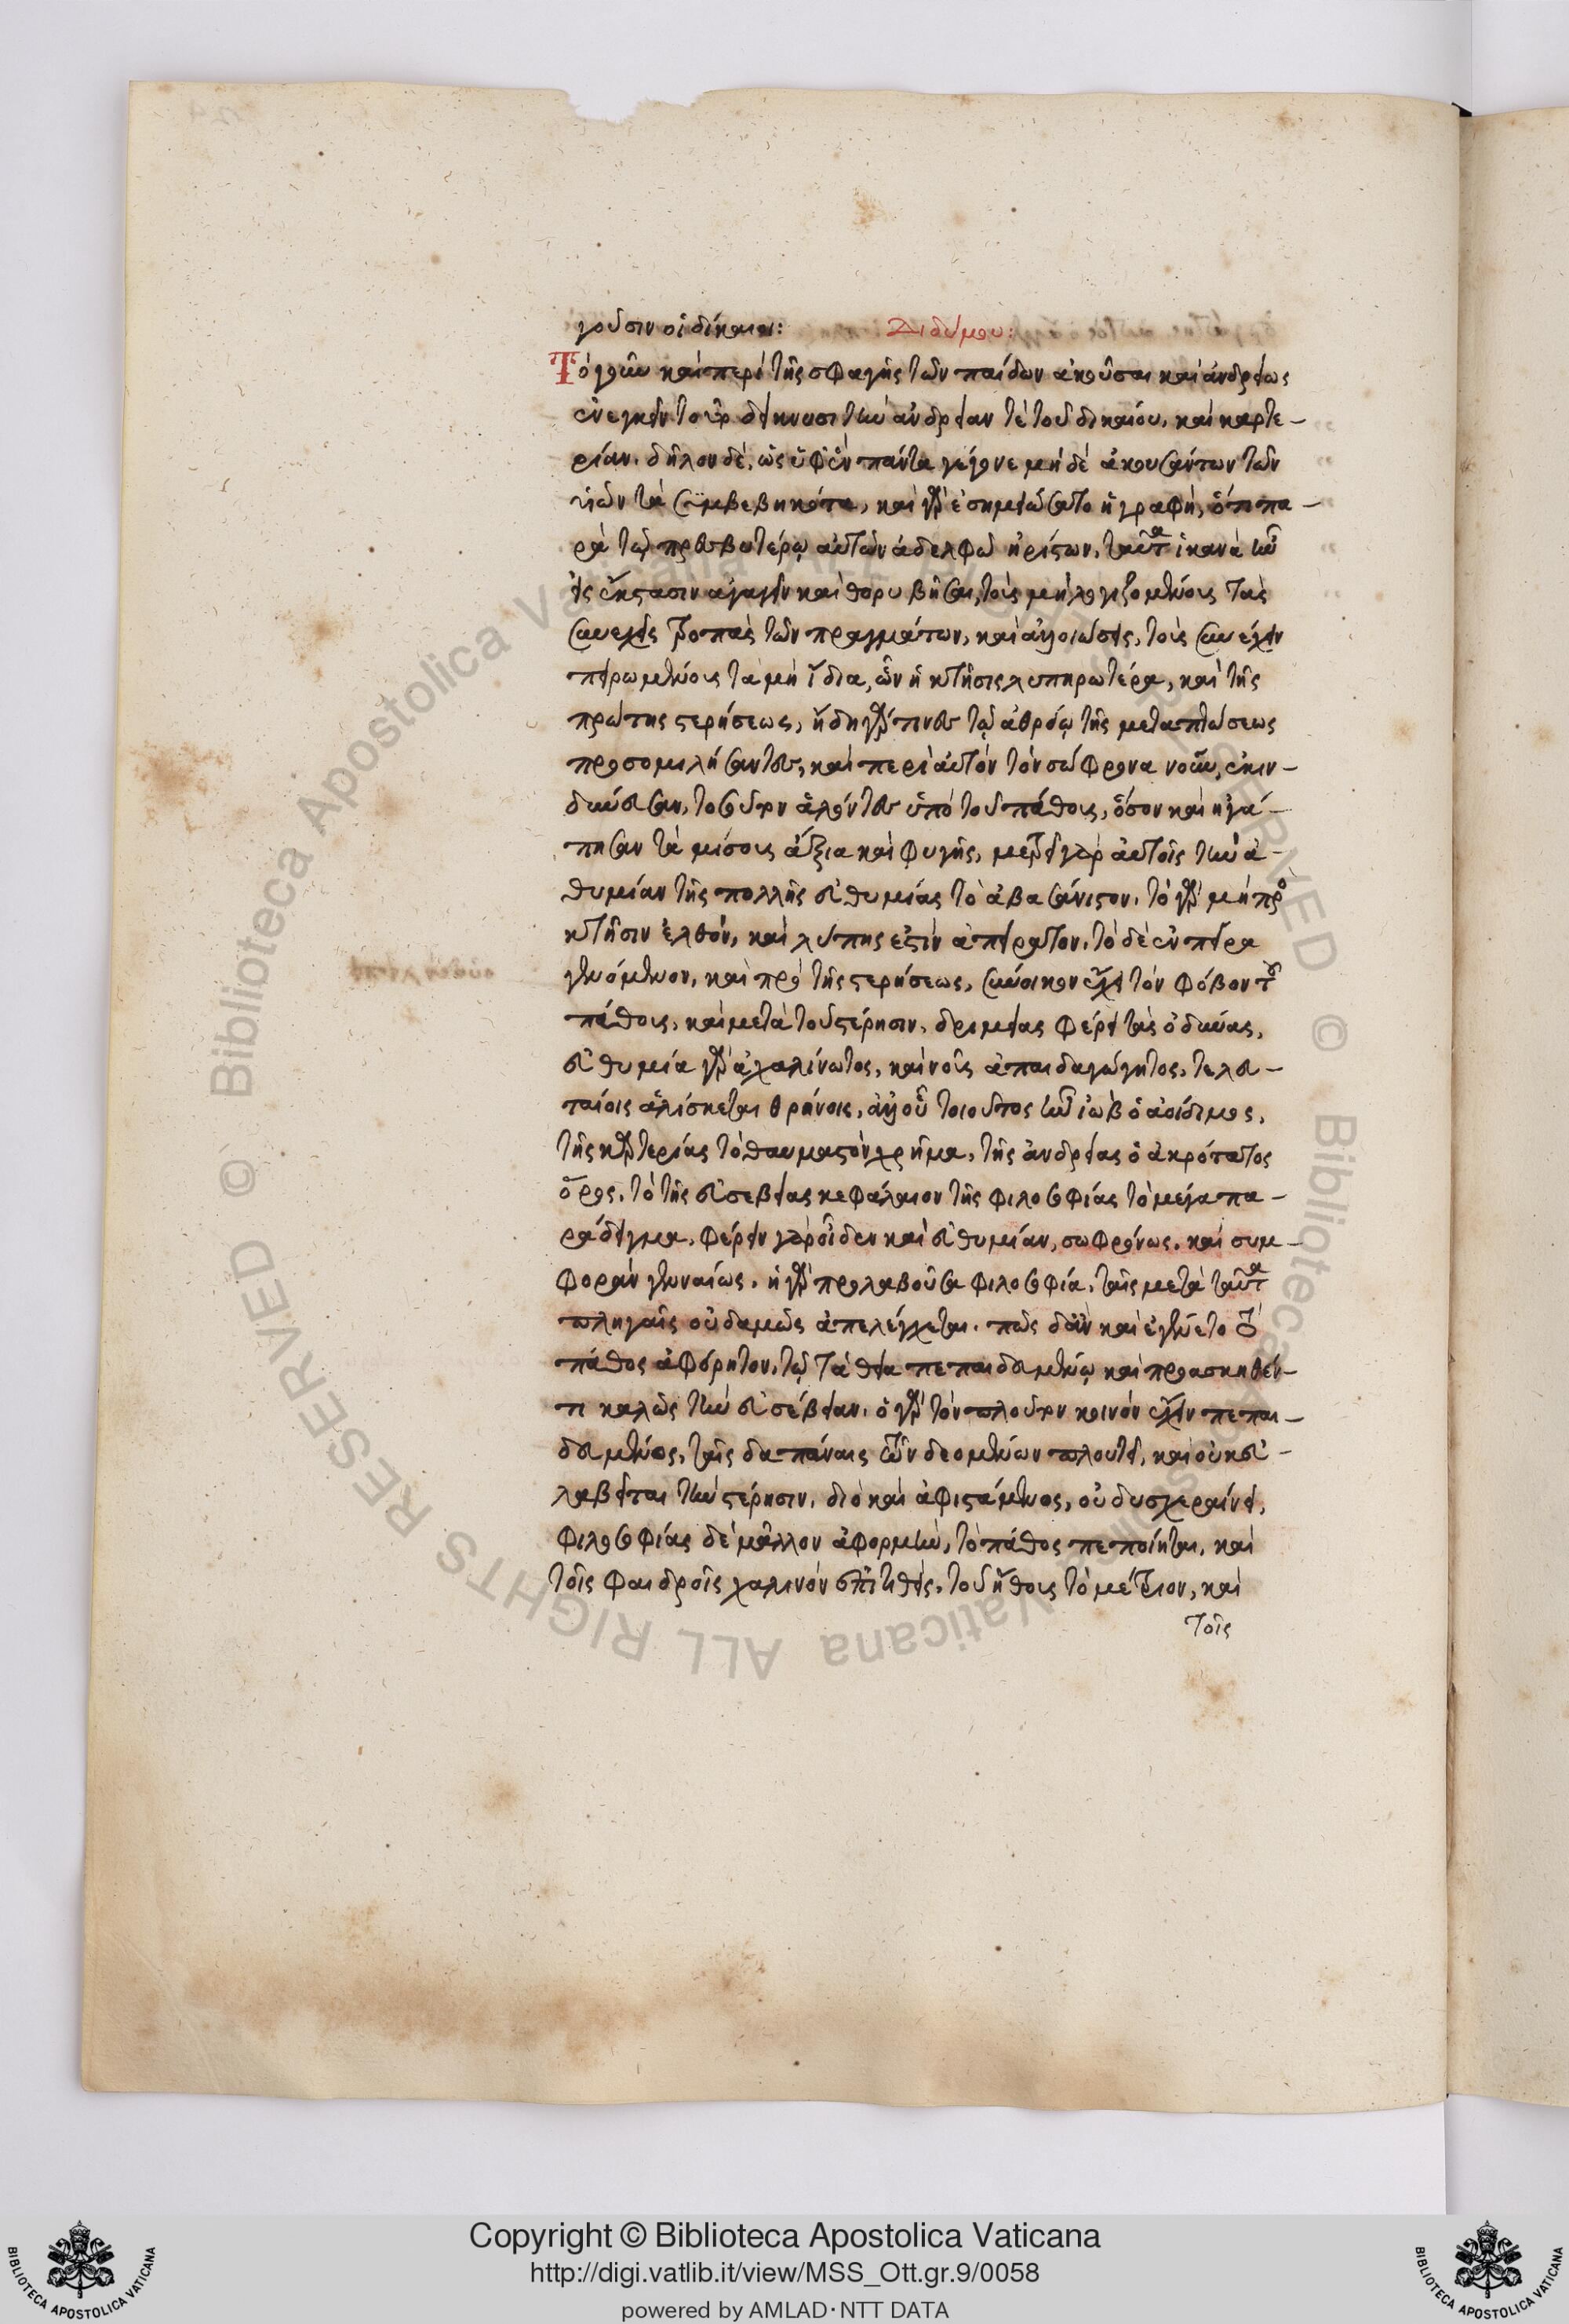 γοῦσιν οἱ δίκαιοι: Διδύμου:
Τὸ γοῦν καὶ περὶ τῆς σφαγῆς τῶν παίδων ἀκοῦσαι καὶ ἀνδρείως
ἐνεγκεῖν δείκνυσι τὴν ἀνδρείαν τὲ τοῦ δικαίου, καὶ καρτε-
ρίαν. δῆλον δὲ, ὡς ὑφ' ἓν πάντα γέγονε μὴ δὲ ἀκουσάντων τῶν
υἱῶν τὰ συμβεβηκότα, καὶ γὰρ ἐσημειώσατο ἡ γραφὴ, ὅτι πα-
ρὰ τῷ πρεσβυτέρῳ αὐτῶν ἀδελφῷ ἠρίστων. ταῦτα ἱκανὰ ἦν
εἰς ἔκστασιν ἀγαγεῖν καὶ θορυβῆσαι, τοὺς μὴ λογιζομένους τὰς
συνεχεῖς τροπὰς τῶν πραγμάτων, καὶ ἀλλοιώσεις, τοὺς συνέχειν
πειρωμένους τὰ μὴ ἴδια, ὧν ἡ κτῆσις λυπηρωτέρα, καὶ τῆς
πρώτης στερήσεως, ἤδη γάρ τινες τῷ ἀθρόῳ τῆς μεταπτώσεως
προσομιλήσαντες, καὶ περὶ αὐτὸν τὸν σώφρονα νοῦν, ἐκιν-
δύνευσαν, τοσοῦτον ἁλόντες ὑπὸ τοῦ πάθους, ὅσον καὶ ἠγά-
πησαν τὰ μίσους ἄξια καὶ φυγῆς, μετρεῖ γὰρ αὐτοῖς τὴν ἀ-
θυμίαν τῆς πολλῆς εὐθυμίας τὸ ἀβασάνιστον. τὸ γὰρ μὴ πρὸς
κτῆσιν ἐλθὸν, καὶ λύπης ἐστὶν ἀπείρατον. τὸ δὲ ἐν πείρᾳ
γενόμενον, καὶ πρὸ τῆς στερήσεως, σύνοικον ἔχει τὸν φόβον τοῦ
πάθους, καὶ μετὰ τοῦ στέρησιν, δριμείας φέρει τὰς ὀδύνας,
εὐθυμία γὰρ ἀχαλίνωτος, καὶ νοῦς ἀπαιδαγώγητος, τελευ-
ταίοις ἁλίσκεται θρήνοις, ἀλλ' οὐ τοιοῦτος ἦν ἰὼβ ὁ ἀοίδιμος,
τῆς καρτερίας τὸ θαυμαστὸν χρῆμα, τῆς ἀνδρείας ὁ ἀκρότατος
ὅρος, τὸ τῆς εὐσεβείας κεφάλαιον τῆς φιλοσοφίας τὸ μέγα πα-
ράδειγμα. φέρειν γὰρ οἶδεν καὶ εὐθυμίαν, σωφρόνως. καὶ συμ-
φορὰν γενναίως. ἡ γὰρ προλαβοῦσα φιλοσοφία, ταῖς μετὰ ταῦτα
πληγαῖς οὐδαμῶς ἀπελέγχεται. πῶς δ' ἂν καὶ ἐγένετο τὸ
πάθος ἀφόρητον, τῷ τὰ θεῖα πεπαιδευμένῳ καὶ προασκηθέν-
τι καλῶς τὴν εὐσέβειαν. ὁ γὰρ τὸν πλοῦτον κοινὸν ἔχειν πεπαι-
δευμένος, ταῖς δαπάναις τῶν δεομένων πλουτεῖ, καὶ οὐκ εὐ-
λαβεῖται τὴν στέρησιν, διὸ καὶ ἀφιστάμενος, οὐ δυσχεραίνει,
φιλοσοφίας δὲ μᾶλλον ἀφορμὴν, τὸ πάθος πεποίηται, καὶ
τοῖς φαιδροῖς χαλινὸν ἐπιτιθεὶς, τοῦ ἤθους τὸ μέτριον, καὶ
τοῖς
Copyright © Biblioteca Apostolica Vaticana
http://digi.vatlib.it/view/MSS_Ott.gr.9/0058
powered by AMLAD·NTT DATA
BIBLIOTECA APOSTOLICA VATICANA
BIBLIOTECA APOSTOLICA VATICANA
© Biblioteca Apostolica Vaticana ALL RIGHTS RESERVED © Biblioteca Apostolica Vaticana ALL RIGHTS RESERVED